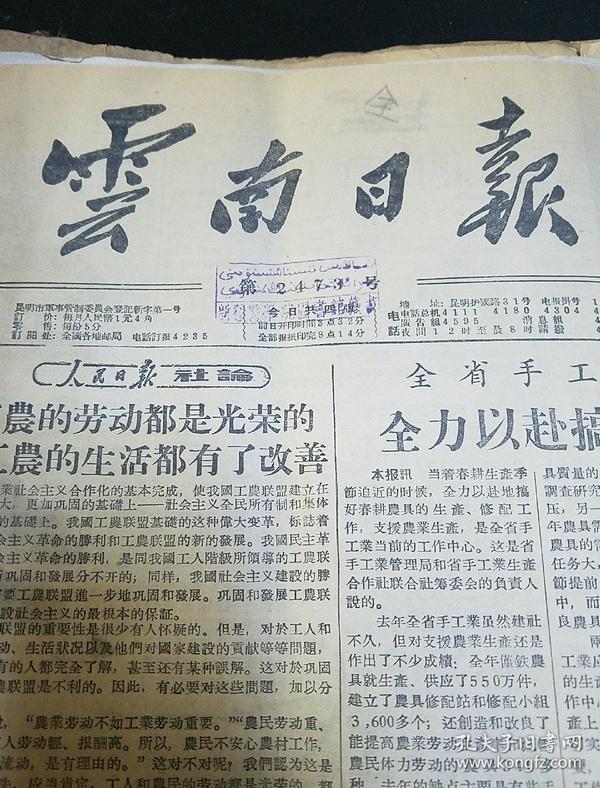 全
雲南日報
第2473号
今日共四版
前日开印时間3点32分
全部报紙印完8点14分
昆明市軍事管制委員会登記新字第一号
訂价:每月人民幣1元4角
零售:每份5分
訂閱处:全國各地邮局 电話訂报4235
地址:昆明护國路31号 电报掛号
电話总机4111 4180 4304
广告組4595 消息組
夜間12时至晨8时請撥
人民日報 社論
農的劳动都是光荣的
農的生活都有了改善
業社会主义合作化的基本完成,使我國工農联盟建立在
大,更加巩固的基础上——社会主义全民所有制和集体
的基礎上。我國工農联盟基础的这种偉大变革,标誌着
会主义革命的勝利和工農联盟的新的發展。我國民主革
会主义革命的勝利,是同我國工人階級所領导的工農联
巩固和發展分不开的;同样,我國社会主义建設的勝
要工農联盟進一步地巩固和發展。巩固和發展工農联
設社会主义的最根本的保証。
联盟的重要性是很少有人怀疑的。但是,对於工人和
动、生活狀况以及他們对國家建設的貢献等等問題,
有的人都完全了解,甚至还有某种誤解。这对於巩固
農联盟是不利的。因此,有必要对这些問題,加以分
,“農業劳动不如工業劳动重要。”“農民劳动重、
人劳动輕、报酬高。所以,農民不安心農村工作,
流动,是有理由的。”这对不对呢?我們認为这是
先,应当肯定,工人和農民的劳动都是光荣的,都
全省手工
全力以赴搞
本报訊 当着春耕生產季
節迫近的时候,全力以赴地搞
好春耕農具的生產、修配工
作,支援農業生產,是全省手
工業当前的工作中心。这是省
手工業管理局和省手工業生產
合作社联合社筹委会的負責人
說的。
去年全省手工業虽然建社
不久,但对支援農業生產还是
作出了不少成績:全年僅鉄農
具就生產、供应了550万件,
建立了農具修配站和修配小組
3,600多个;还創造和改良了
能提高農業劳动生產
農民体力劳动的農
种。去年的缺点主要是有些手
具質量的
調查研究
压,另一
年農具需
農具的需
任务大,
節提前
中,而
良農具
兩
工業应
的生產
作中。
產上
孔夫子旧书网
www.kongfz.com